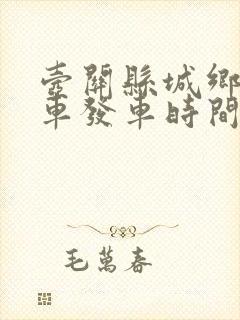 壺關縣城鄉
車發車時間
毛萬春